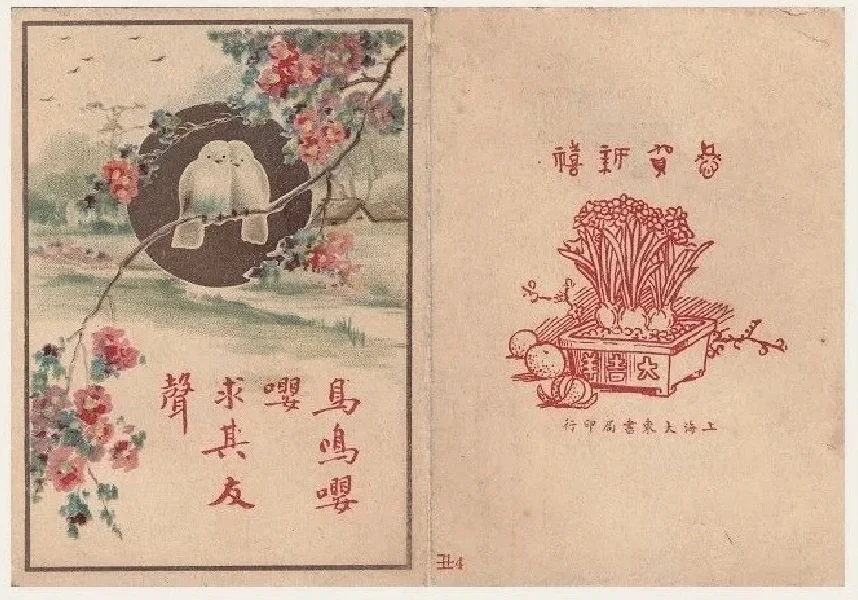 鳥鳴嚶
嚶
求其友
聲
恭賀新禧
大吉羊
上海大東書局印行
丑4